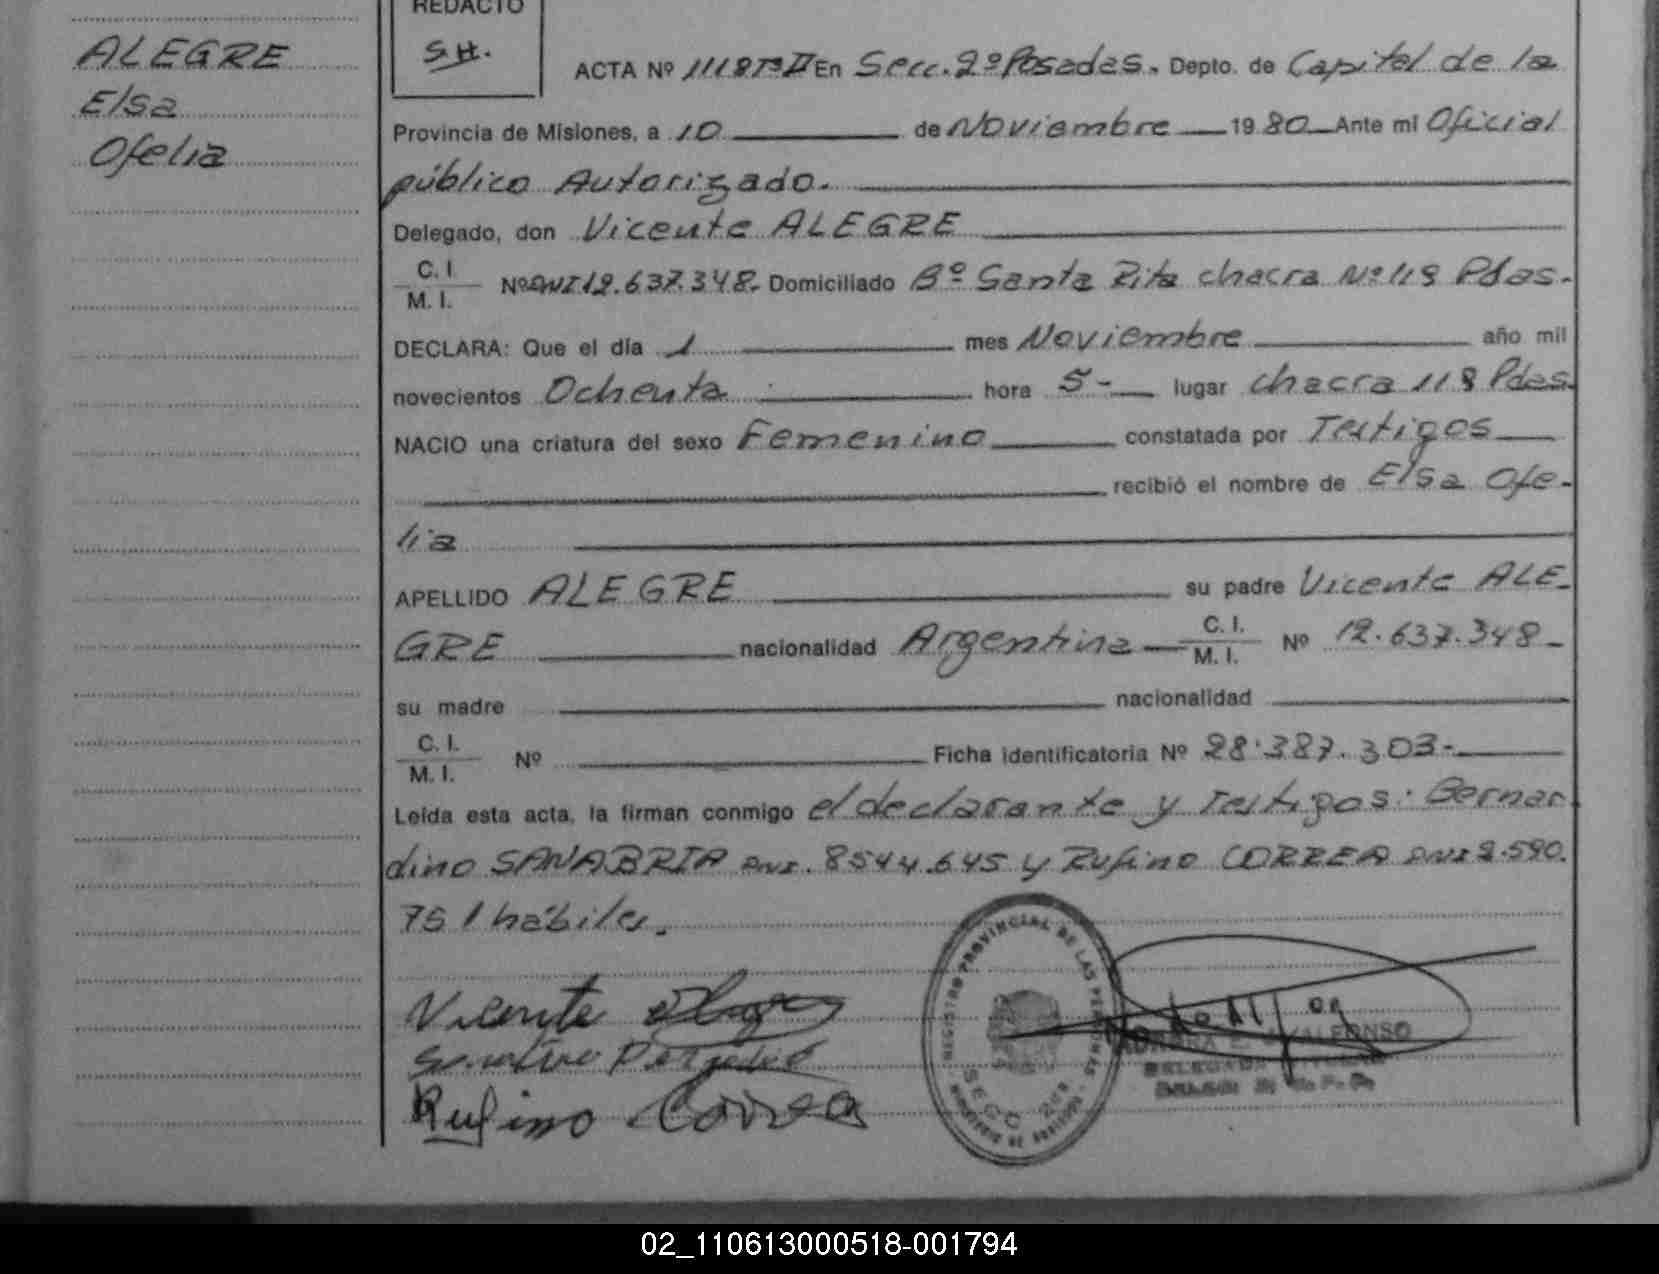 ALEGRE
Elsa
Ofelia
REDACTO
S.H.
ACTA Nº 1118 Tº II En Secc. 2º Posadas. Depto. de Capital de la
Provincia de Misiones, a 10 de Noviembre 19 80 Ante mi Oficial
público Autorizado.
Delegado, don Vicente ALEGRE
C. I.
M. I. Nº DNI 12.637.348. Domiciliado Bº Santa Rita chacra Nº 118 Pdas.
DECLARA: Que el día 1 mes Noviembre año mil
novecientos Ochenta hora 5- lugar chacra 118 Pdas.
NACIO una criatura del sexo Femenino constatada por Testigos
recibió el nombre de Elsa Ofe-
lia
APELLIDO ALEGRE su padre Vicente ALE-
GRE nacionalidad Argentina C. I. M. I. Nº 12.637.348-
su madre nacionalidad
C. I.
M. I. Nº Ficha identificatoria Nº 28.387.303-
Leída esta acta, la firman conmigo el declarante y Testigos: Bernar-
dino SANABRIA DNI. 8544.645 y Rufino CORREA DNI 2.590.
751 hábiles.
Vicente
Rufino Correa
REGISTRO PROVINCIAL DE LAS PERSONAS
SECC 2da
02_110613000518-001794